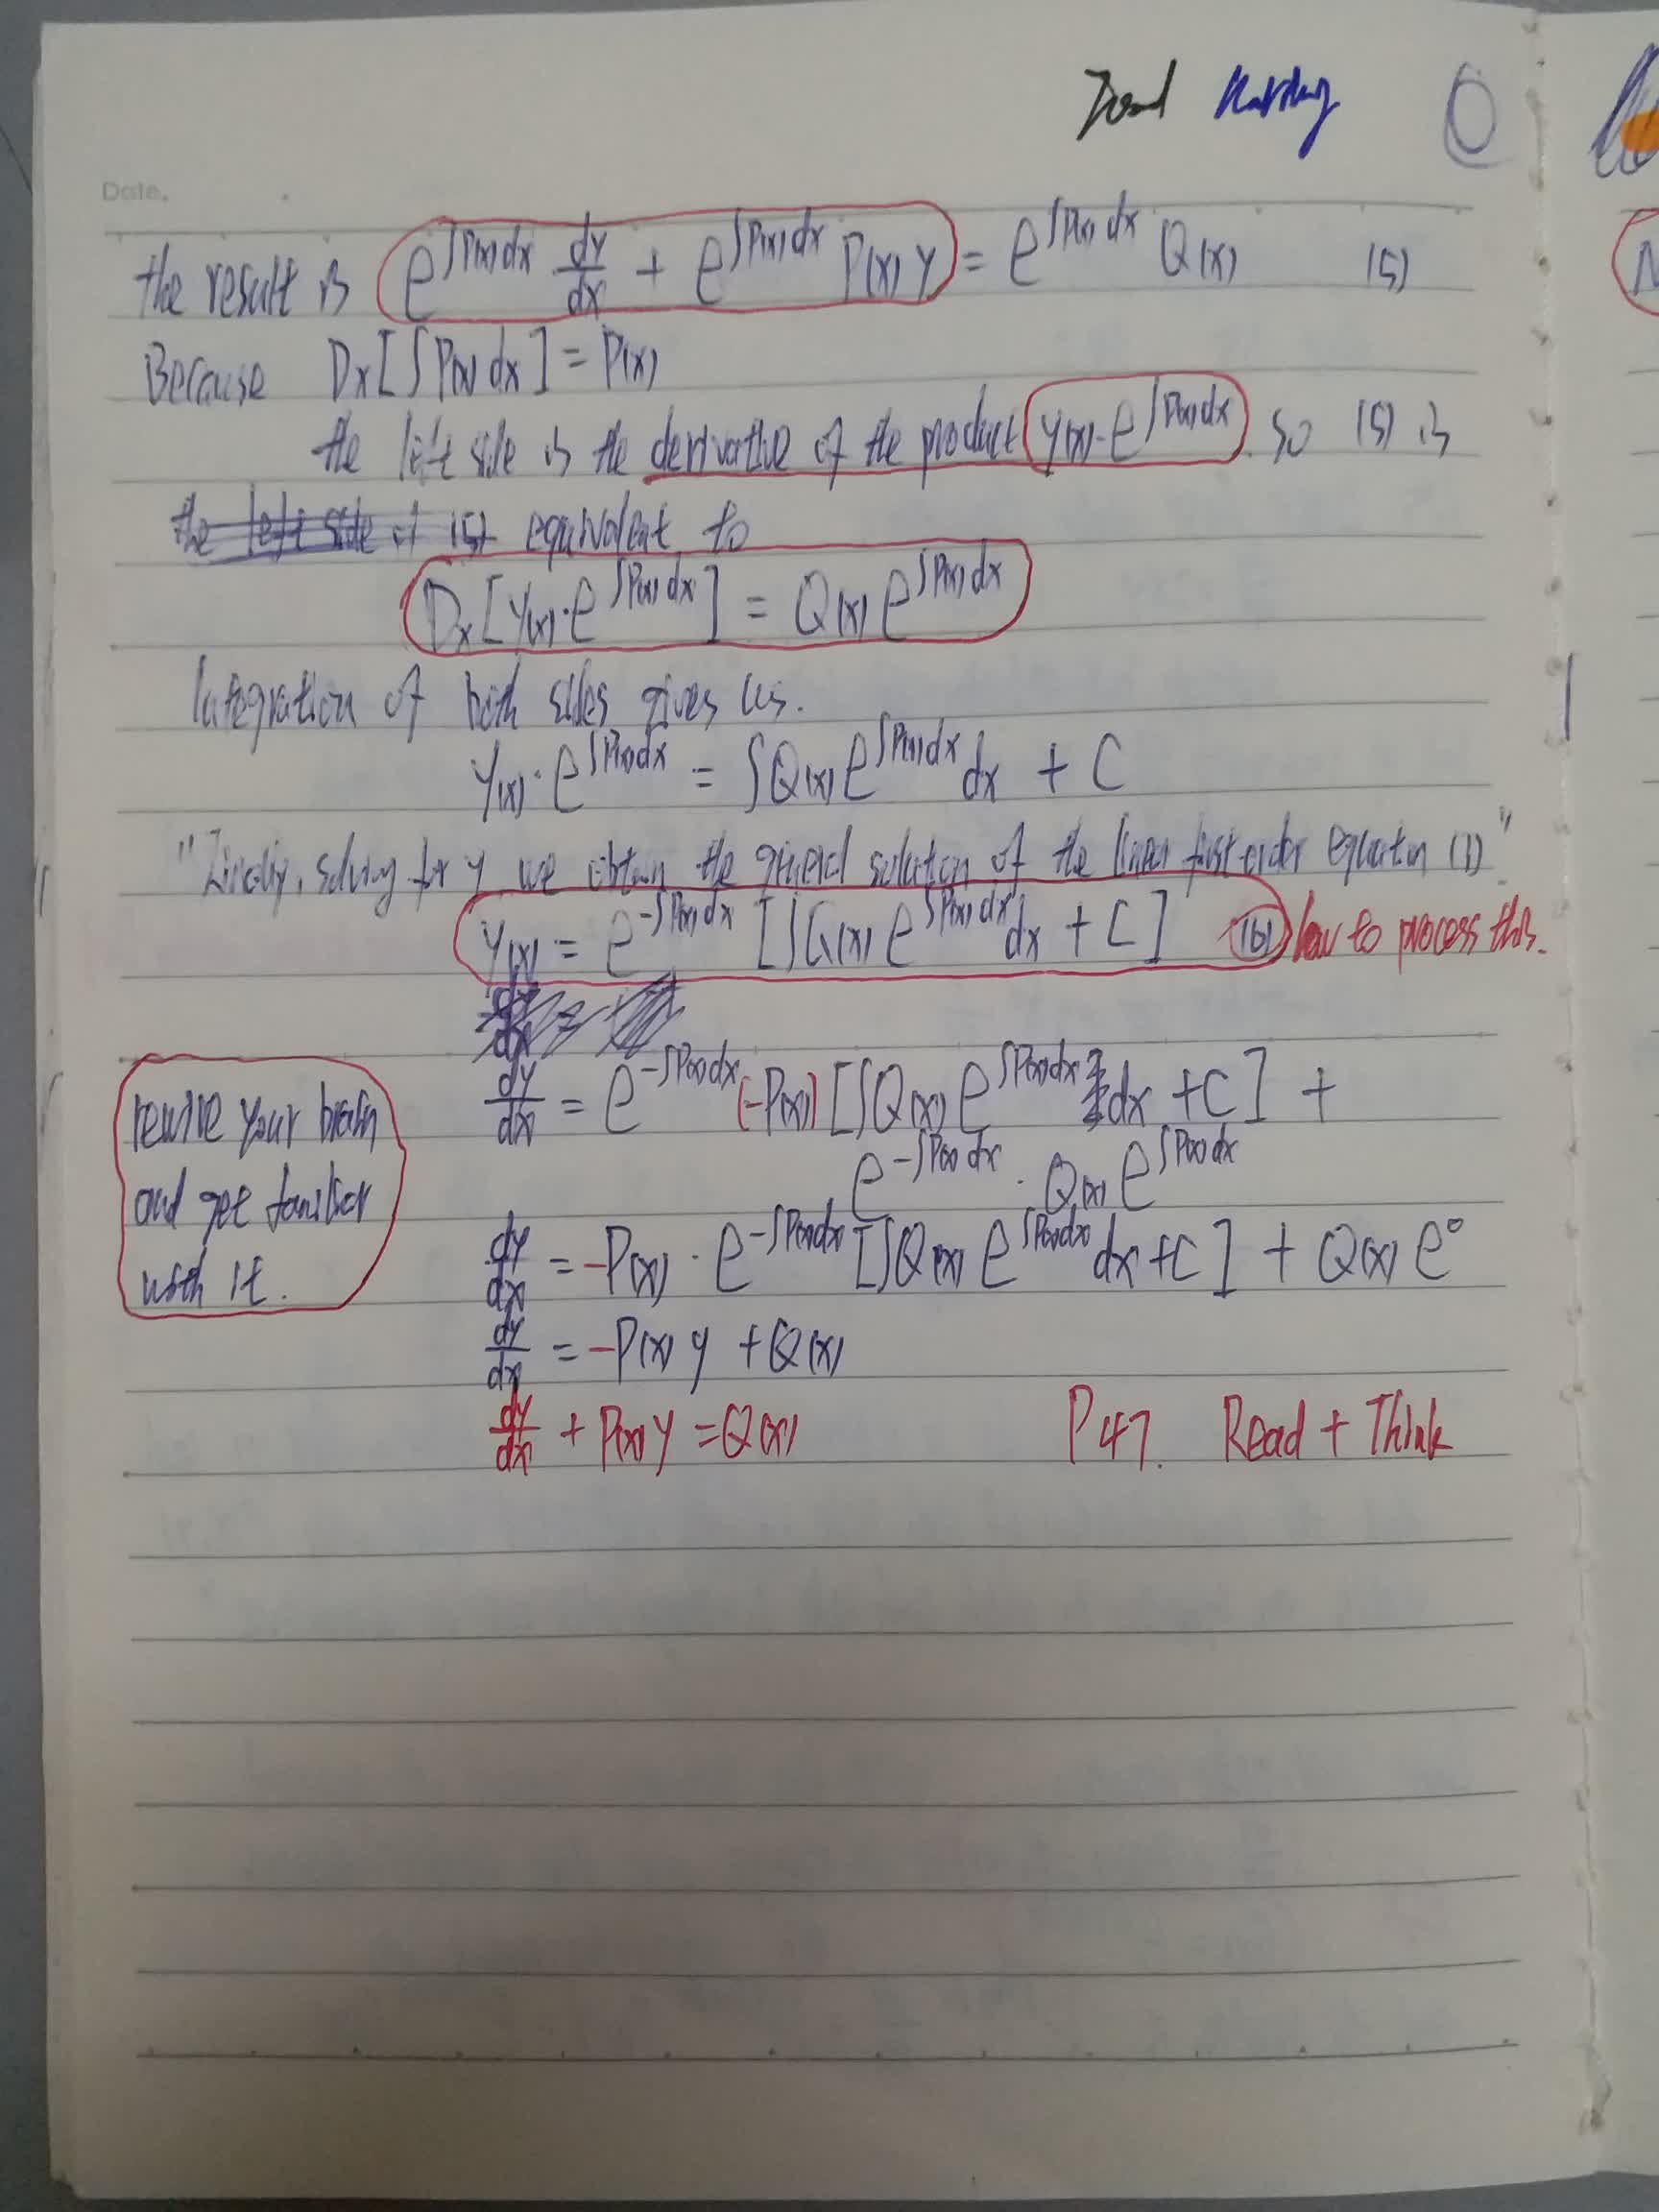 Date.
the result is e^∫P(x)dx dy/dx + e^∫P(x)dx P(x) y = e^∫P(x)dx Q(x) (5)
Because Dx[∫P(x)dx] = P(x)
the left side is the derivative of the product y(x)·e^∫P(x)dx. so (5) is
the left side of (5) equivalent to
Dx[y(x)·e^∫P(x)dx] = Q(x) e^∫P(x)dx
Integration of both sides gives us.
y(x)·e^∫P(x)dx = ∫Q(x)e^∫P(x)dx dx + C
"Finally, solving for y, we obtain the general solution of the linear first-order equation (1)"
y(x) = e^-∫P(x)dx [∫Q(x) e^∫P(x)dx dx + C] (6) how to process this.
dy/dx =
dy/dx = e^-∫P(x)dx (-P(x)) [∫Q(x) e^∫P(x)dx dx + C] +
e^-∫P(x)dx · Q(x) e^∫P(x)dx
dy/dx = -P(x) · e^-∫P(x)dx [∫Q(x) e^∫P(x)dx dx + C] + Q(x) e^0
dy/dx = -P(x) y + Q(x)
dy/dx + P(x) y = Q(x) P47. Read + Think
rewire your brain
and get familiar
with it.